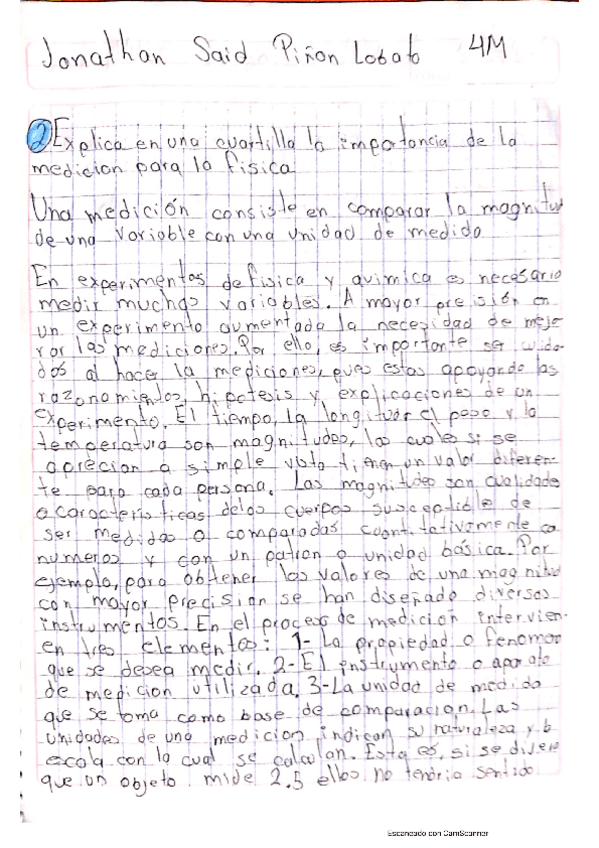 Jonathan Said Piñon Lobato 4M
2 Explica en una cuartilla la importancia de la
medicion para la fisica
Una medición consiste en comparar la magnitud
de una variable con una unidad de medida
En experimentos de fisica y quimica es necesario
medir muchas variables. A mayor precisión en
un experimento aumentada la necesidad de mejo
rar las mediciones. Por ello, es importante ser cuida
dos al hacer la mediciones, pues estas apoyando las
razonamientos, hipotesis y explicaciones de un
experimento. El tiempo, la longitud el peso y la
temperatura son magnitudes, las cuales si se
aprecian a simple vista tienen un valor diferen-
te para cada persona. Las magnitudes son cualidades
o caracteristicas delos cuerpos susceptible de
ser medidas o comparadas cuantitativamente co
numeros y con un patron o unidad básica. Por
ejemplo, para obtener los valores de una magnitud
con mayor precision se han diseñado diversos
instrumentos. En el proceso de medición intervien-
en tres elementos: 1- La propiedad o fenomeno
que se desea medir. 2- El instrumento o aparato
de medicion utilizada. 3- La unidad de medida
que se toma como base de comparacion. Las
unidades de una medicion indican su naturaleza y la
escala con la cual se calculan. Esta es, si se diera
que un objeto mide 2.5 ellos no tendria sentido
Escaneado con CamScanner